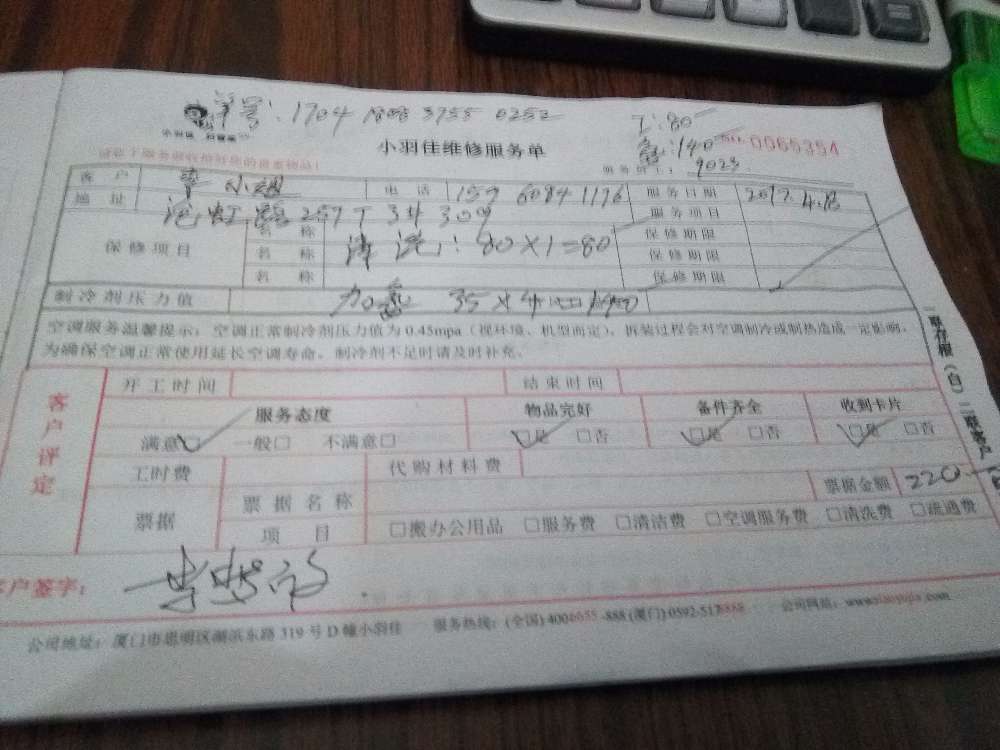 单号：1704 1808 3755 0252
工：80
小羽佳维修服务单
氟：140
No. 0065354
9023
客户 李小姐 电话 159 6084 1196 服务日期 2017.4.18
地址 沧虹路 257 309 服务项目
保修项目 名称 清洗：80×1=80 保修期限
名称 保修期限
名称 保修期限
制冷剂压力值 加氟 35×4=140
空调服务温馨提示：空调正常制冷剂压力值为0.45mpa（视环境、机型而定），拆装过程会对空调制冷或制热造成一定影响，
为确保空调正常使用延长空调寿命，制冷剂不足时请及时补充。
一联存根（白）二联客户
客户评定
开工时间 结束时间
服务态度 物品完好 备件齐全 收到卡片
满意☑ 一般□ 不满意□ ☑是 □否 ☑是 □否 ☑是 □否
工时费 代购材料费
票据 票据名称 票据金额 220
项目 □搬办公用品 □服务费 □清洁费 □空调服务费 □清洗费 □疏通费
客户签字：
公司地址：厦门市思明区湖滨东路319号D幢小羽佳 服务热线：(全国) 4006655-888 (厦门) 0592-5178888 公司网站：www.xiaoyujia.com